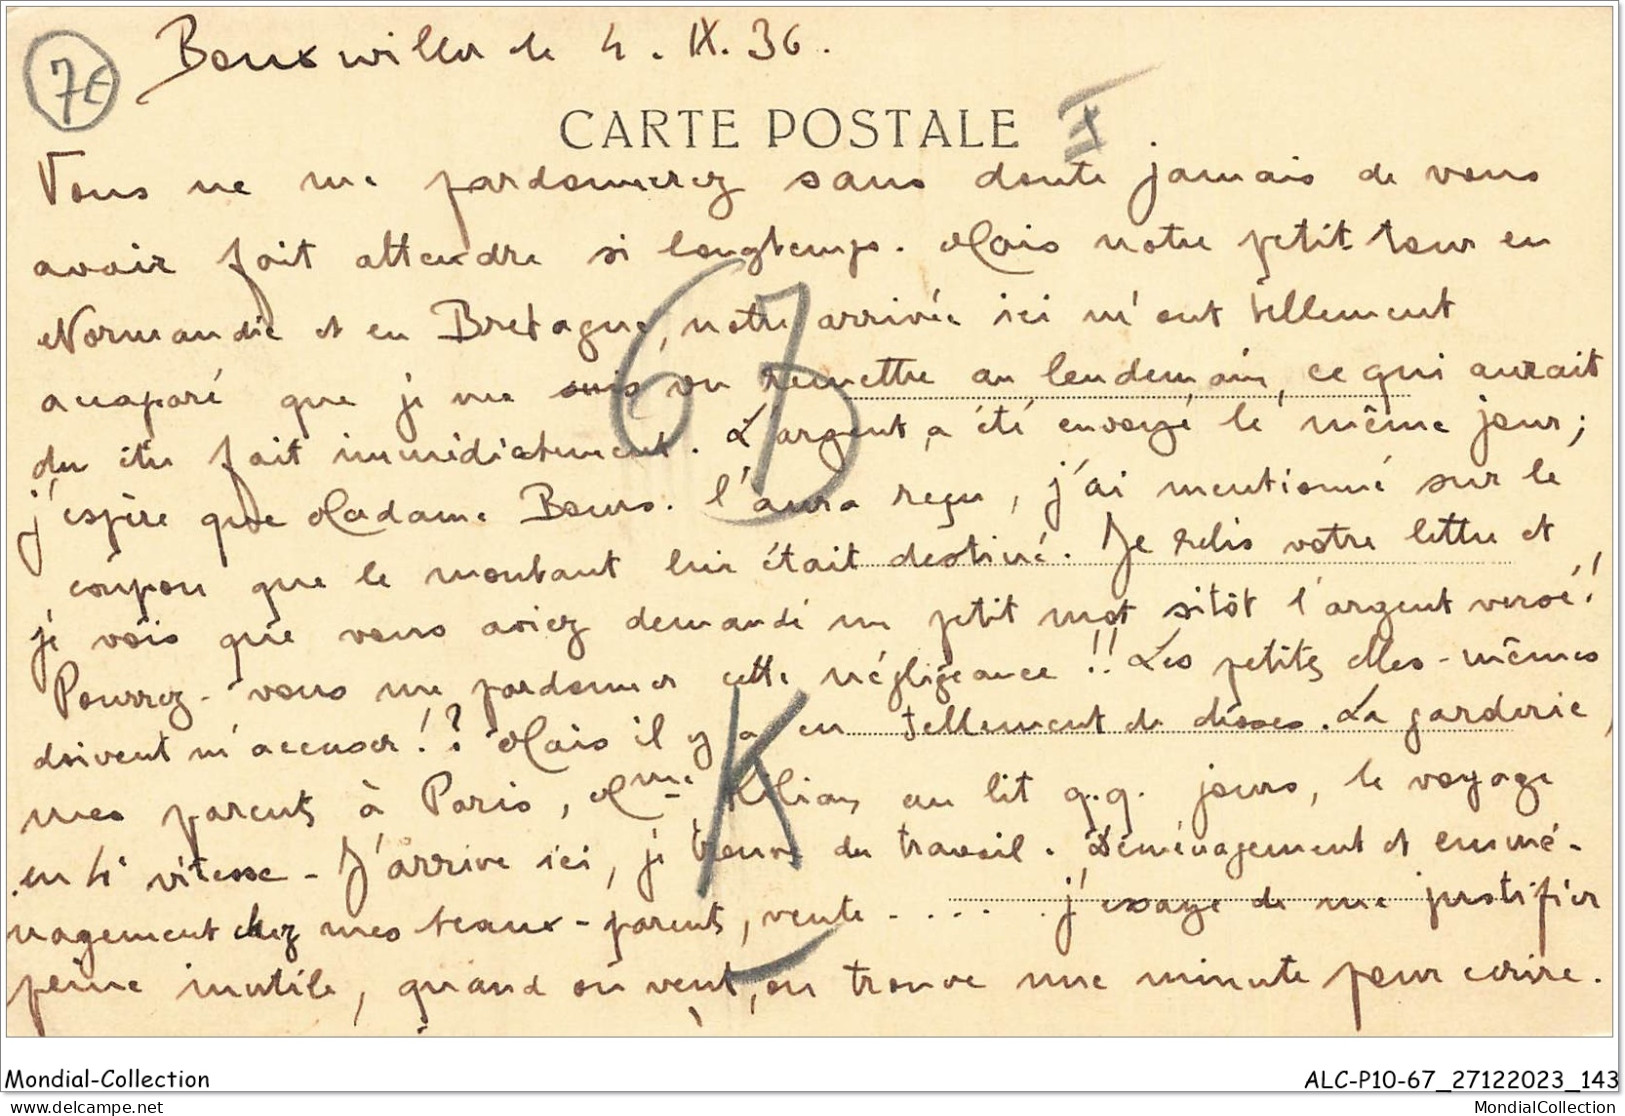 7€
Bouxwiller le 4. IX. 36.
CARTE POSTALE
I
Vous ne me pardonnerez sans doute jamais de vous
avoir fait attendre si longtemps. Mais notre petit tour en
Normandie et en Bretagne, notre arrivée ici m'ont tellement
accaparé que je me suis vu remettre au lendemain, ce qui aurait
du être fait immédiatement. L'argent a été envoyé le même jour;
j'espère que Madame Bours. l'aura reçu, j'ai mentionné sur le
coupon que le montant lui était destiné. Je relis votre lettre et
je vois que vous aviez demandé un petit mot sitôt l'argent versé!
Pourrez-vous me pardonner cette négligeance!! Les petites elles-mêmes
doivent m'accuser!? Mais il y a eu tellement de choses. La garderie,
mes parents à Paris, Mme Kilian au lit q.q. jours, le voyage
en 4e vitesse - J'arrive ici, je trouve du travail. Déménagement et emmé-
nagement chez mes beaux-parents, vente - .... j'essaye de me justifier
peine inutile, quand on veut, on trouve une minute pour écrire.
67
K
Mondial-Collection
ALC-P10-67_27122023_143
www.delcampe.net
MondialCollection